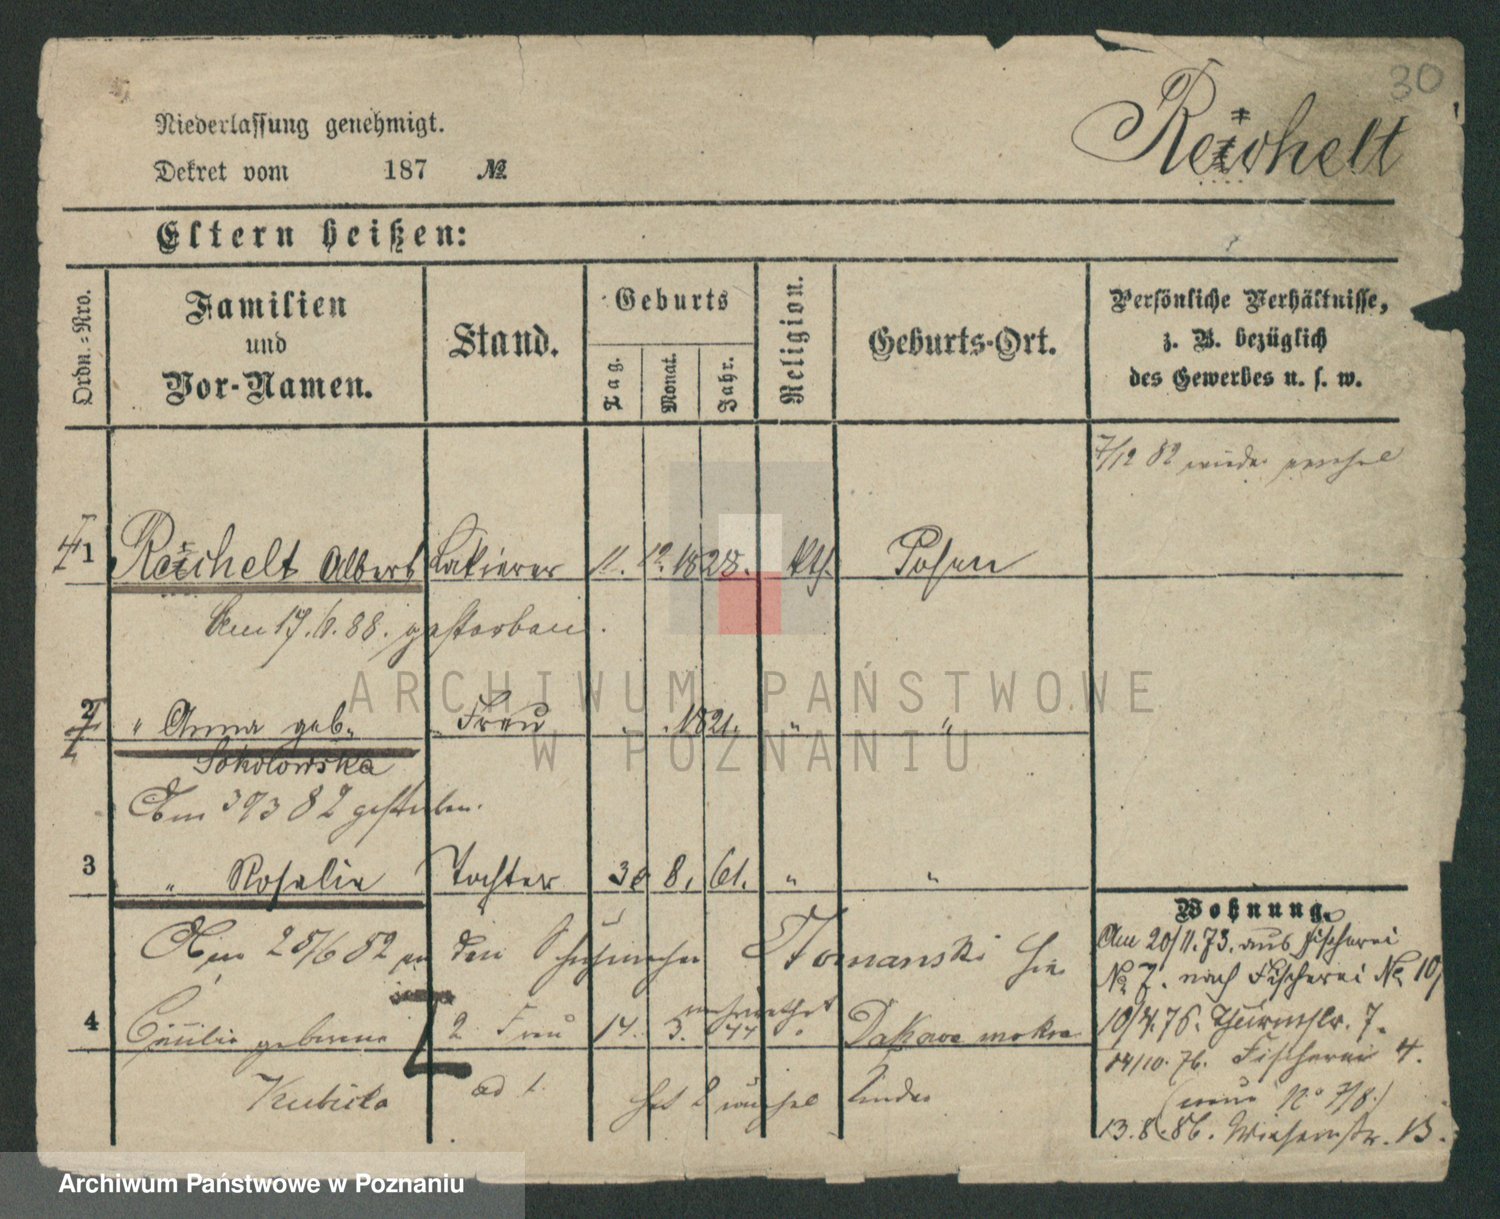 30
Reichelt
Niederlassung genehmigt.
Dekret vom 187 №
Eltern heißen:
Ordn.=Nro.
Familien
und
Vor-Namen.
Stand.
Geburts
Tag.
Monat.
Jahr.
Religion.
Geburts-Ort.
Persönliche Verhältnisse,
z. B. bezüglich
des Gewerbes u. s. w.
7/12 82 wieder
1 Reichelt Albert Lakierer 11. 12. 1828. kth. Posen
Am 17. 88. gestorben.
2 " Anna geb. Frau . . 1821. " "
Sokolowska
Am 82 gestorben.
3 " Rosalie Tochter 30 8. 61. " "
Am 25/6 82 den Tomanski
4 Cäcilie geborene 2. Frau 14. 3. 44 Dakowo mokre
Kubicka ad 1. hat 2 Kinder
Wohnung.
Am 20/11. 73. aus Fischerei
No 7. nach Fischerei No 10,
10/4. 76. Thurmstr. 7.
14/10. 76. Fischerei 4.
(neue No 7/8.)
13. 8. 86. Wiesenstr. 13.
ARCHIWUM PAŃSTWOWE
W POZNANIU
Archiwum Państwowe w Poznaniu